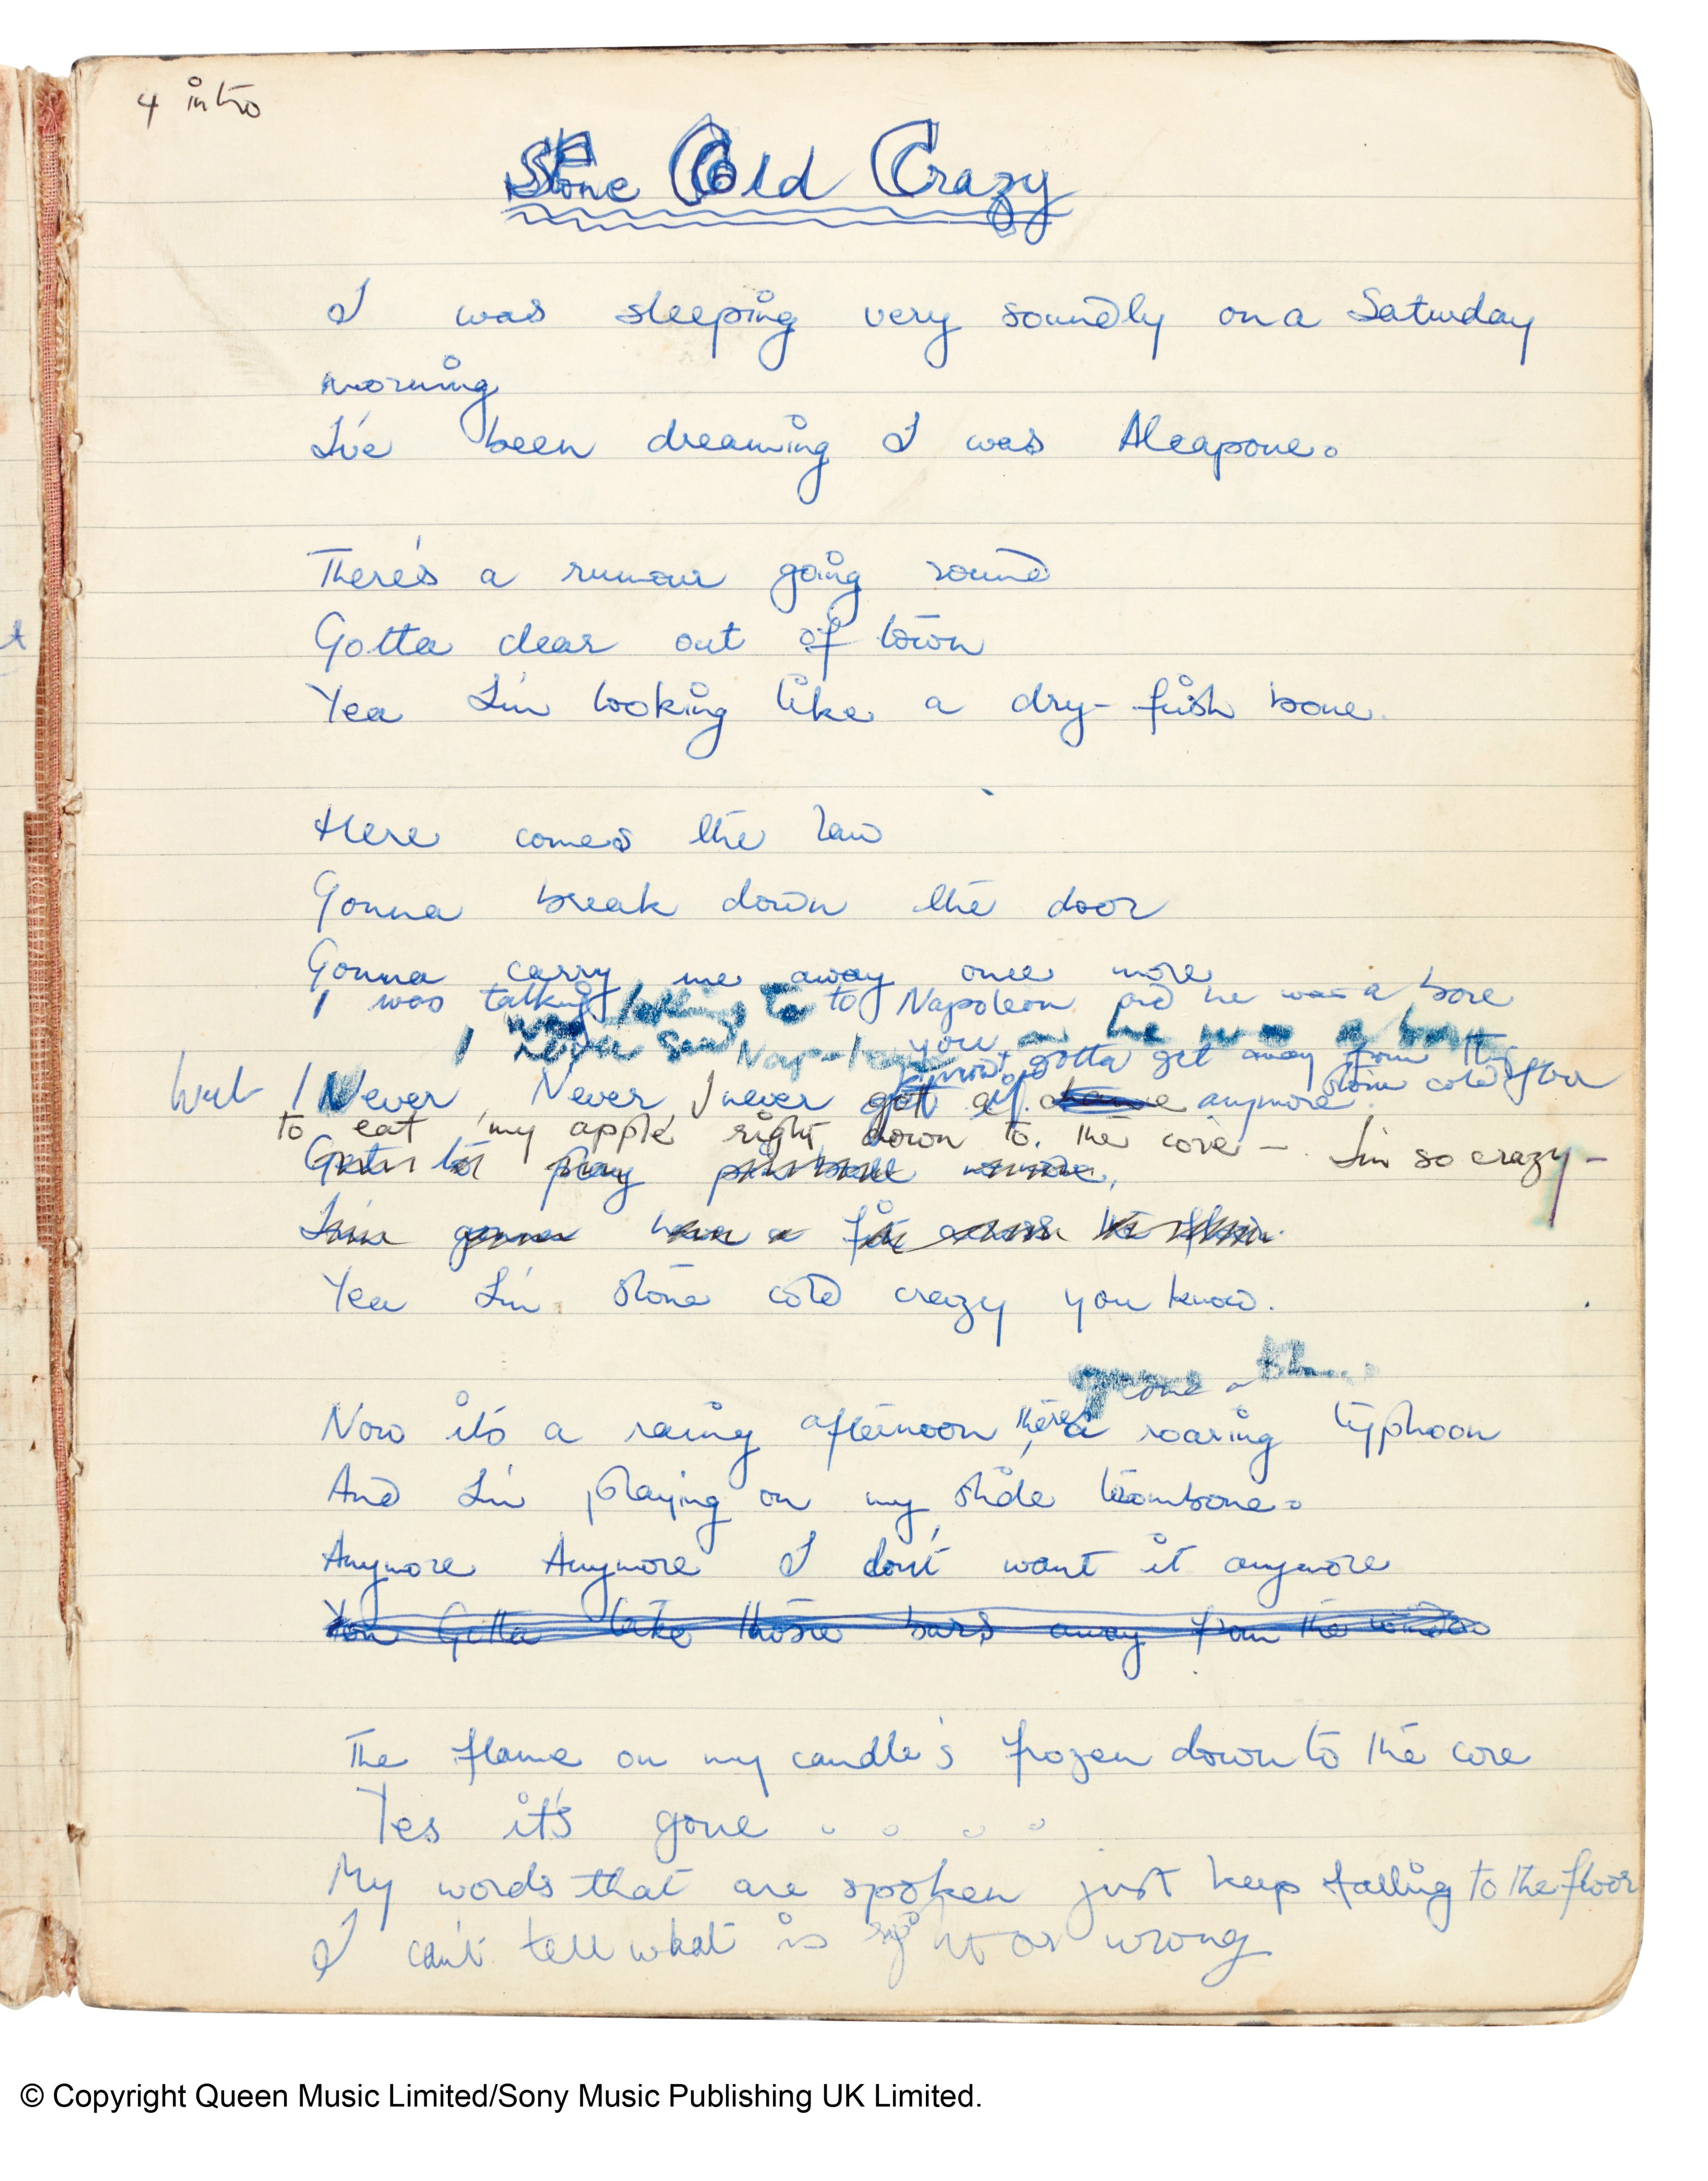 4 intro
Stone Cold Crazy
I was sleeping very soundly on a Saturday
morning
I've been dreaming I was Alcapone.
There's a rumour going round
Gotta clear out of town
Yea I'm looking like a dry-fish bone.
Here comes the law
Gonna break down the door
Gonna carry me away once more
I was talking to Napoleon and he was a bore
gotta get away from this
stone cold floor
but I Never, Never, I never got anymore
to eat my apple right down to the core - I'm so crazy -
Yea I'm stone cold crazy you know.
come a
Now it's a rainy afternoon there's a roaring typhoon
And I'm playing on my slide trombone.
Anymore Anymore I don't want it anymore
You Gotta take those bars away from the window
The flame on my candle's frozen down to the core
Yes it's gone . . . .
My words that are spoken just keep falling to the floor
I can't tell what is right or wrong
© Copyright Queen Music Limited/Sony Music Publishing UK Limited.